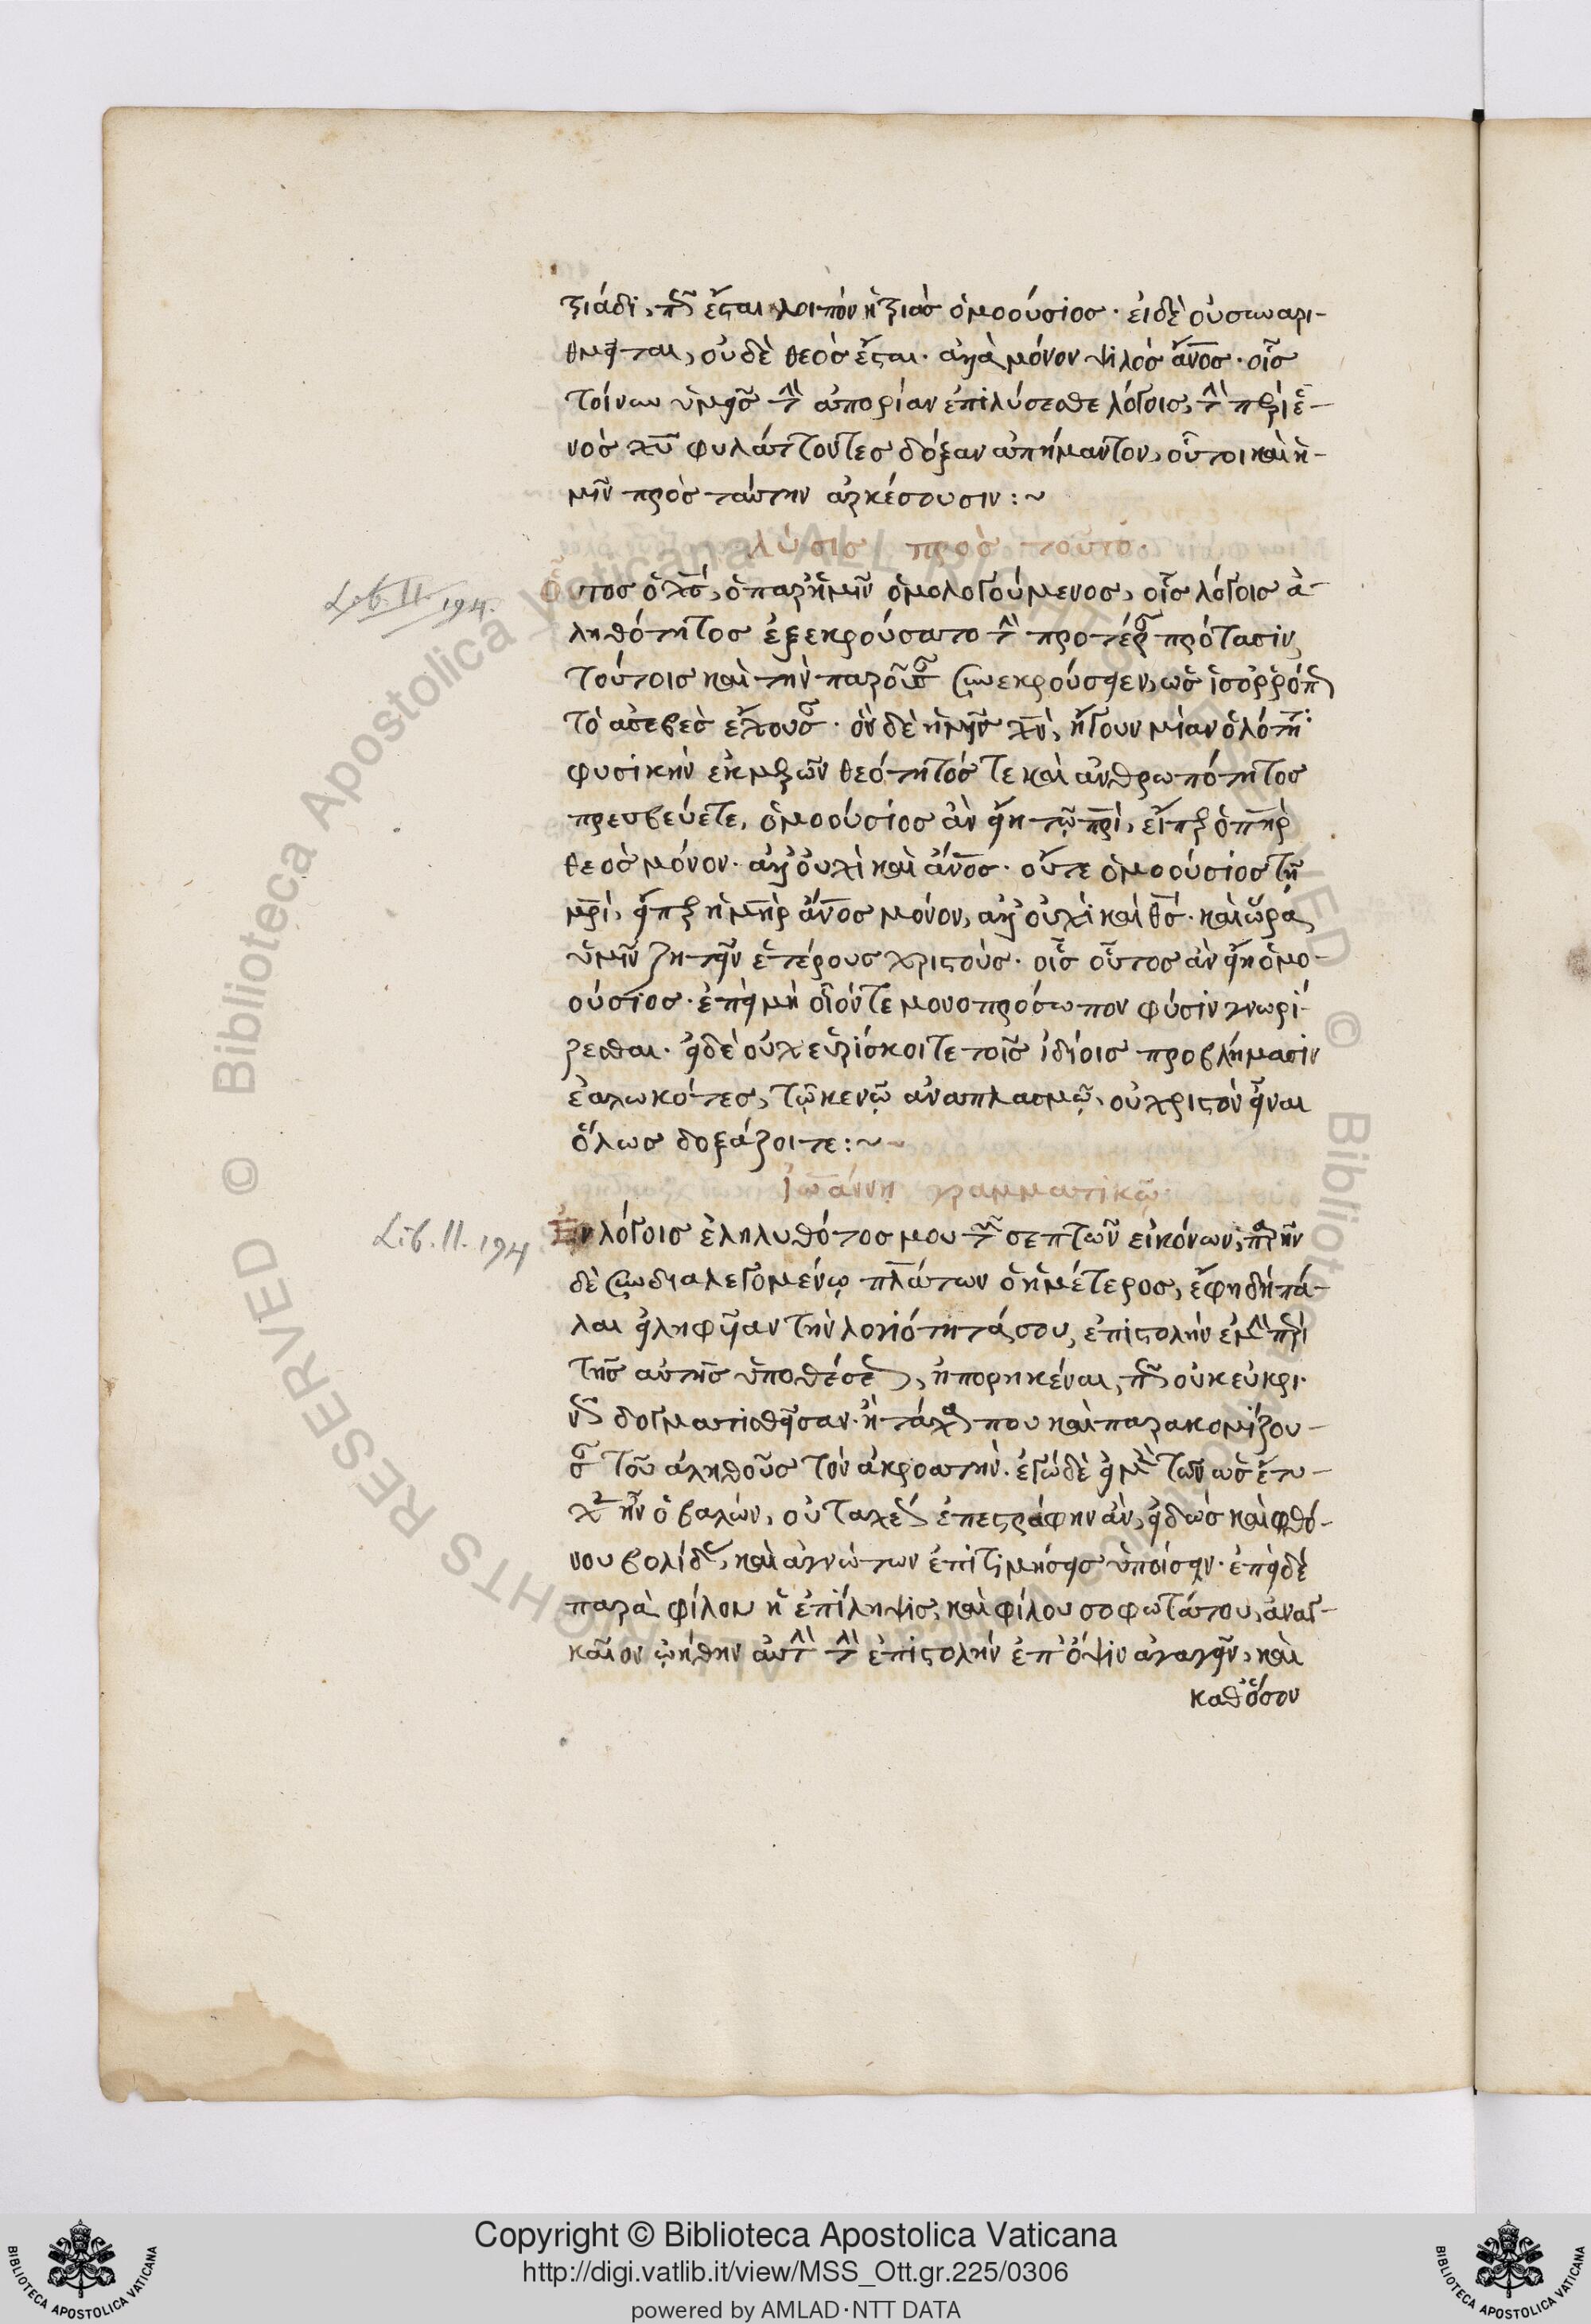 τριάδι, πῶς ἔσται λοιπὸν ἡ τριὰς ὁμοούσιος· εἰ δὲ οὐ συναρι-
θμεῖται, οὐδὲ θεὸς ἔσται· ἀλλὰ μόνον ψιλὸς ἄνος· οἷς
τοίνυν ὑμεῖς τὴν ἀπορίαν ἐπιλύσεσθε λόγοις, τὴν περὶ ἑ-
νὸς χυ φυλάττοντες δόξαν ἀπήμαντον, οὗτοι καὶ ἡ-
μῖν πρὸς ταύτην ἀρκέσουσιν:~
λύσις πρὸς τοῦτο.
Οὗτος ὁ χς, ὁ παρ' ἡμῖν ὁμολογούμενος, οἷς λόγοις ἀ-
ληθότητος ἐξεκρούσατο τὴν προτέραν πρότασιν,
τούτοις καὶ τὴν παροῦσαν συνεκρούσειεν, ὡς ἰσόρροπον
τὸ ἀσεβὲς ἔχουσαν· ὃν δὲ ὑμεῖς χν, ἤγουν μίαν ὁλότητα
φυσικὴν ἐκ μερῶν θεότητός τε καὶ ἀνθρωπότητος
πρεσβεύετε, ὁμοούσιος ἂν εἴη τῷ πρι, εἴπερ ὁ πηρ
θεὸς μόνον· ἀλλ' οὐχὶ καὶ ἄνος· οὔτε ὁμοούσιος τῇ
μρι, εἴπερ ἡ μηρ ἄνος μόνον, ἀλλ' οὐχὶ καὶ θς· καὶ ὥρα
ὑμῖν ζητεῖν ἑτέρους χριστούς· οἷς οὗτος ἂν εἴη ὁμο-
ούσιος· ἐπεὶ μὴ οἷόν τε μονοπρόσωπον φύσιν γνωρί-
ζεσθαι· εἰ δὲ οὐχ εὑρίσκοιτε τοῖς ἰδίοις προβλήμασιν
ἑαλωκότες, τῷ κενῷ ἀναπλασμῷ, οὐ χριστὸν εἶναι
ὅλως δοξάζοιτε:~
Ἰωάννῃ γραμματικῷ.
Ἐν λόγοις ἐληλυθότος μου τῶν σεπτῶν εἰκόνων, παρῆν
δὲ συνδιαλεγομένῳ πλάτων ὁ ἡμέτερος, ἔφη δὴ πά-
λαι εἰληφυῖαν τὴν λογιότητά σου, ἐπιστολὴν ἐμὴν περὶ
τῆς αὐτῆς ὑποθέσεως, ἠπορηκέναι, πῶς οὐκ εὐκρι-
νῶς δογματισθεῖσαν· ἢ τάχα που καὶ παρακομίζου-
σαν τοῦ ἀληθοῦς τὸν ἀκροατήν· ἐγὼ δὲ εἰ μὲν τῶν ὡς ἔτυ-
χεν ἦν ὁ βαλών, οὐ ταχέως ἐπεστράφην ἄν, εἰδὼς καὶ φθό-
νου βολίδας, καὶ ἀγνώτων ἐπιτιμήσεις ὑποίσειν· ἐπεὶ δὲ
παρὰ φίλου ἡ ἐπίληψις, καὶ φίλου σοφωτάτου, ἀναγ-
καῖον ᾠήθην αὐτὴν τὴν ἐπιστολὴν ἐπ' ὄψιν ἀγαγεῖν, καὶ
καθόσον
Lib. II. 194.
Lib. II. 194
Copyright © Biblioteca Apostolica Vaticana
http://digi.vatlib.it/view/MSS_Ott.gr.225/0306
powered by AMLAD·NTT DATA